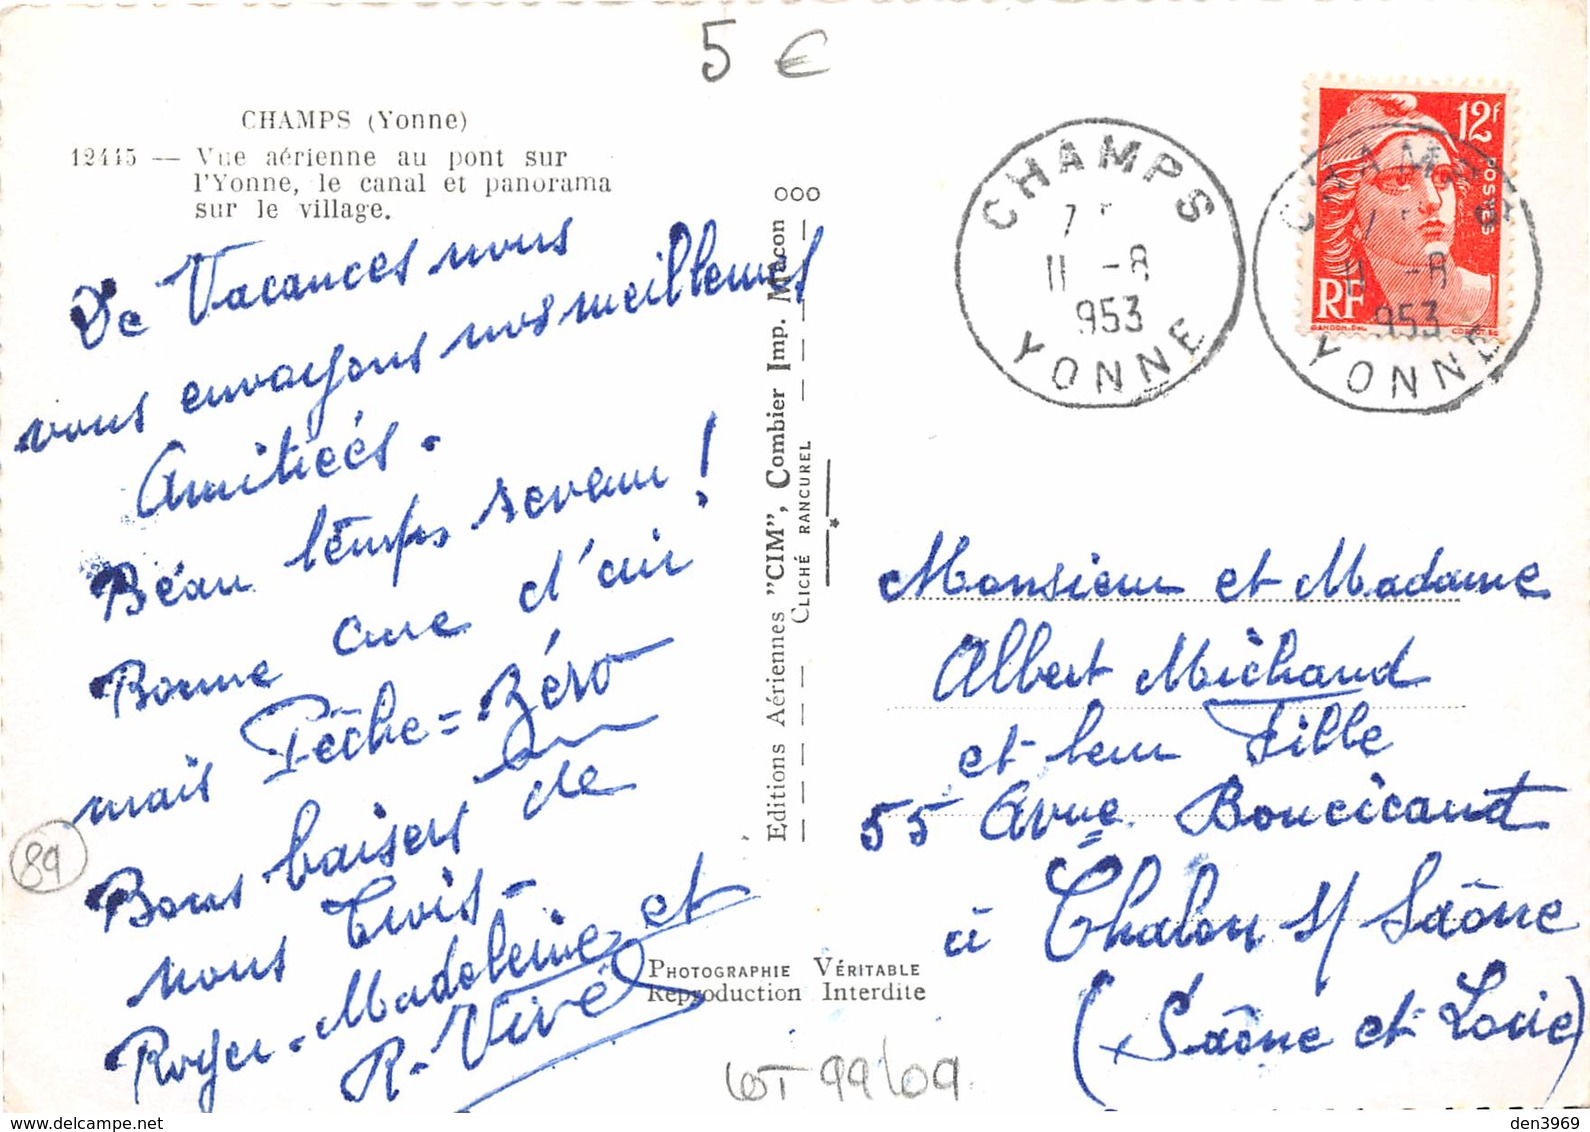 5 €
CHAMPS (Yonne)
12445 — Vue aérienne au pont sur
l'Yonne, le canal et panorama
sur le village.
De Vacances nous
vous envoyons nos meilleures
Amitiées.
Beau temps revenu !
Bonne cure d'air
mais Pêche = Zéro
Bons baisers de
nous Trois -
Roger - Madeleine et
R. Vivé
89
Editions Aériennes "CIM", Combier Imp. Macon
CLICHÉ RANCUREL
PHOTOGRAPHIE VÉRITABLE
Reproduction Interdite
CHAMPS
11 -8
953
YONNE
CHAMPS
11 -8
953
YONNE
12f
POSTES
RF
GANDON
Monsieur et Madame
Albert Michaud
et leur Fille
55 Avnue Boucicaut
à Chalon s/ Saône
(Saône et Loire)
99 09
den3969